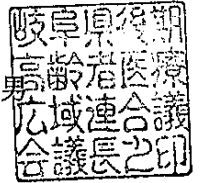 岐阜県後期
高齢者医療
男
広域連合議
会議長之印